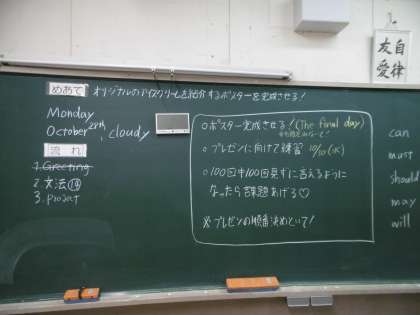 めあて オリジナルのアイスクリームを紹介するポスターを完成させる!
Monday
October 28th, cloudy
流れ
1. Greeting
2. 文法⑭
3. project
○ポスター完成させる!(The final day)
○プレゼンに向けて練習 10/30(水)
○100回中100回見ずに言えるように
なったら課題あげる♡
※プレゼンの順番決めといて!
can
must
should
may
will
自律
友愛